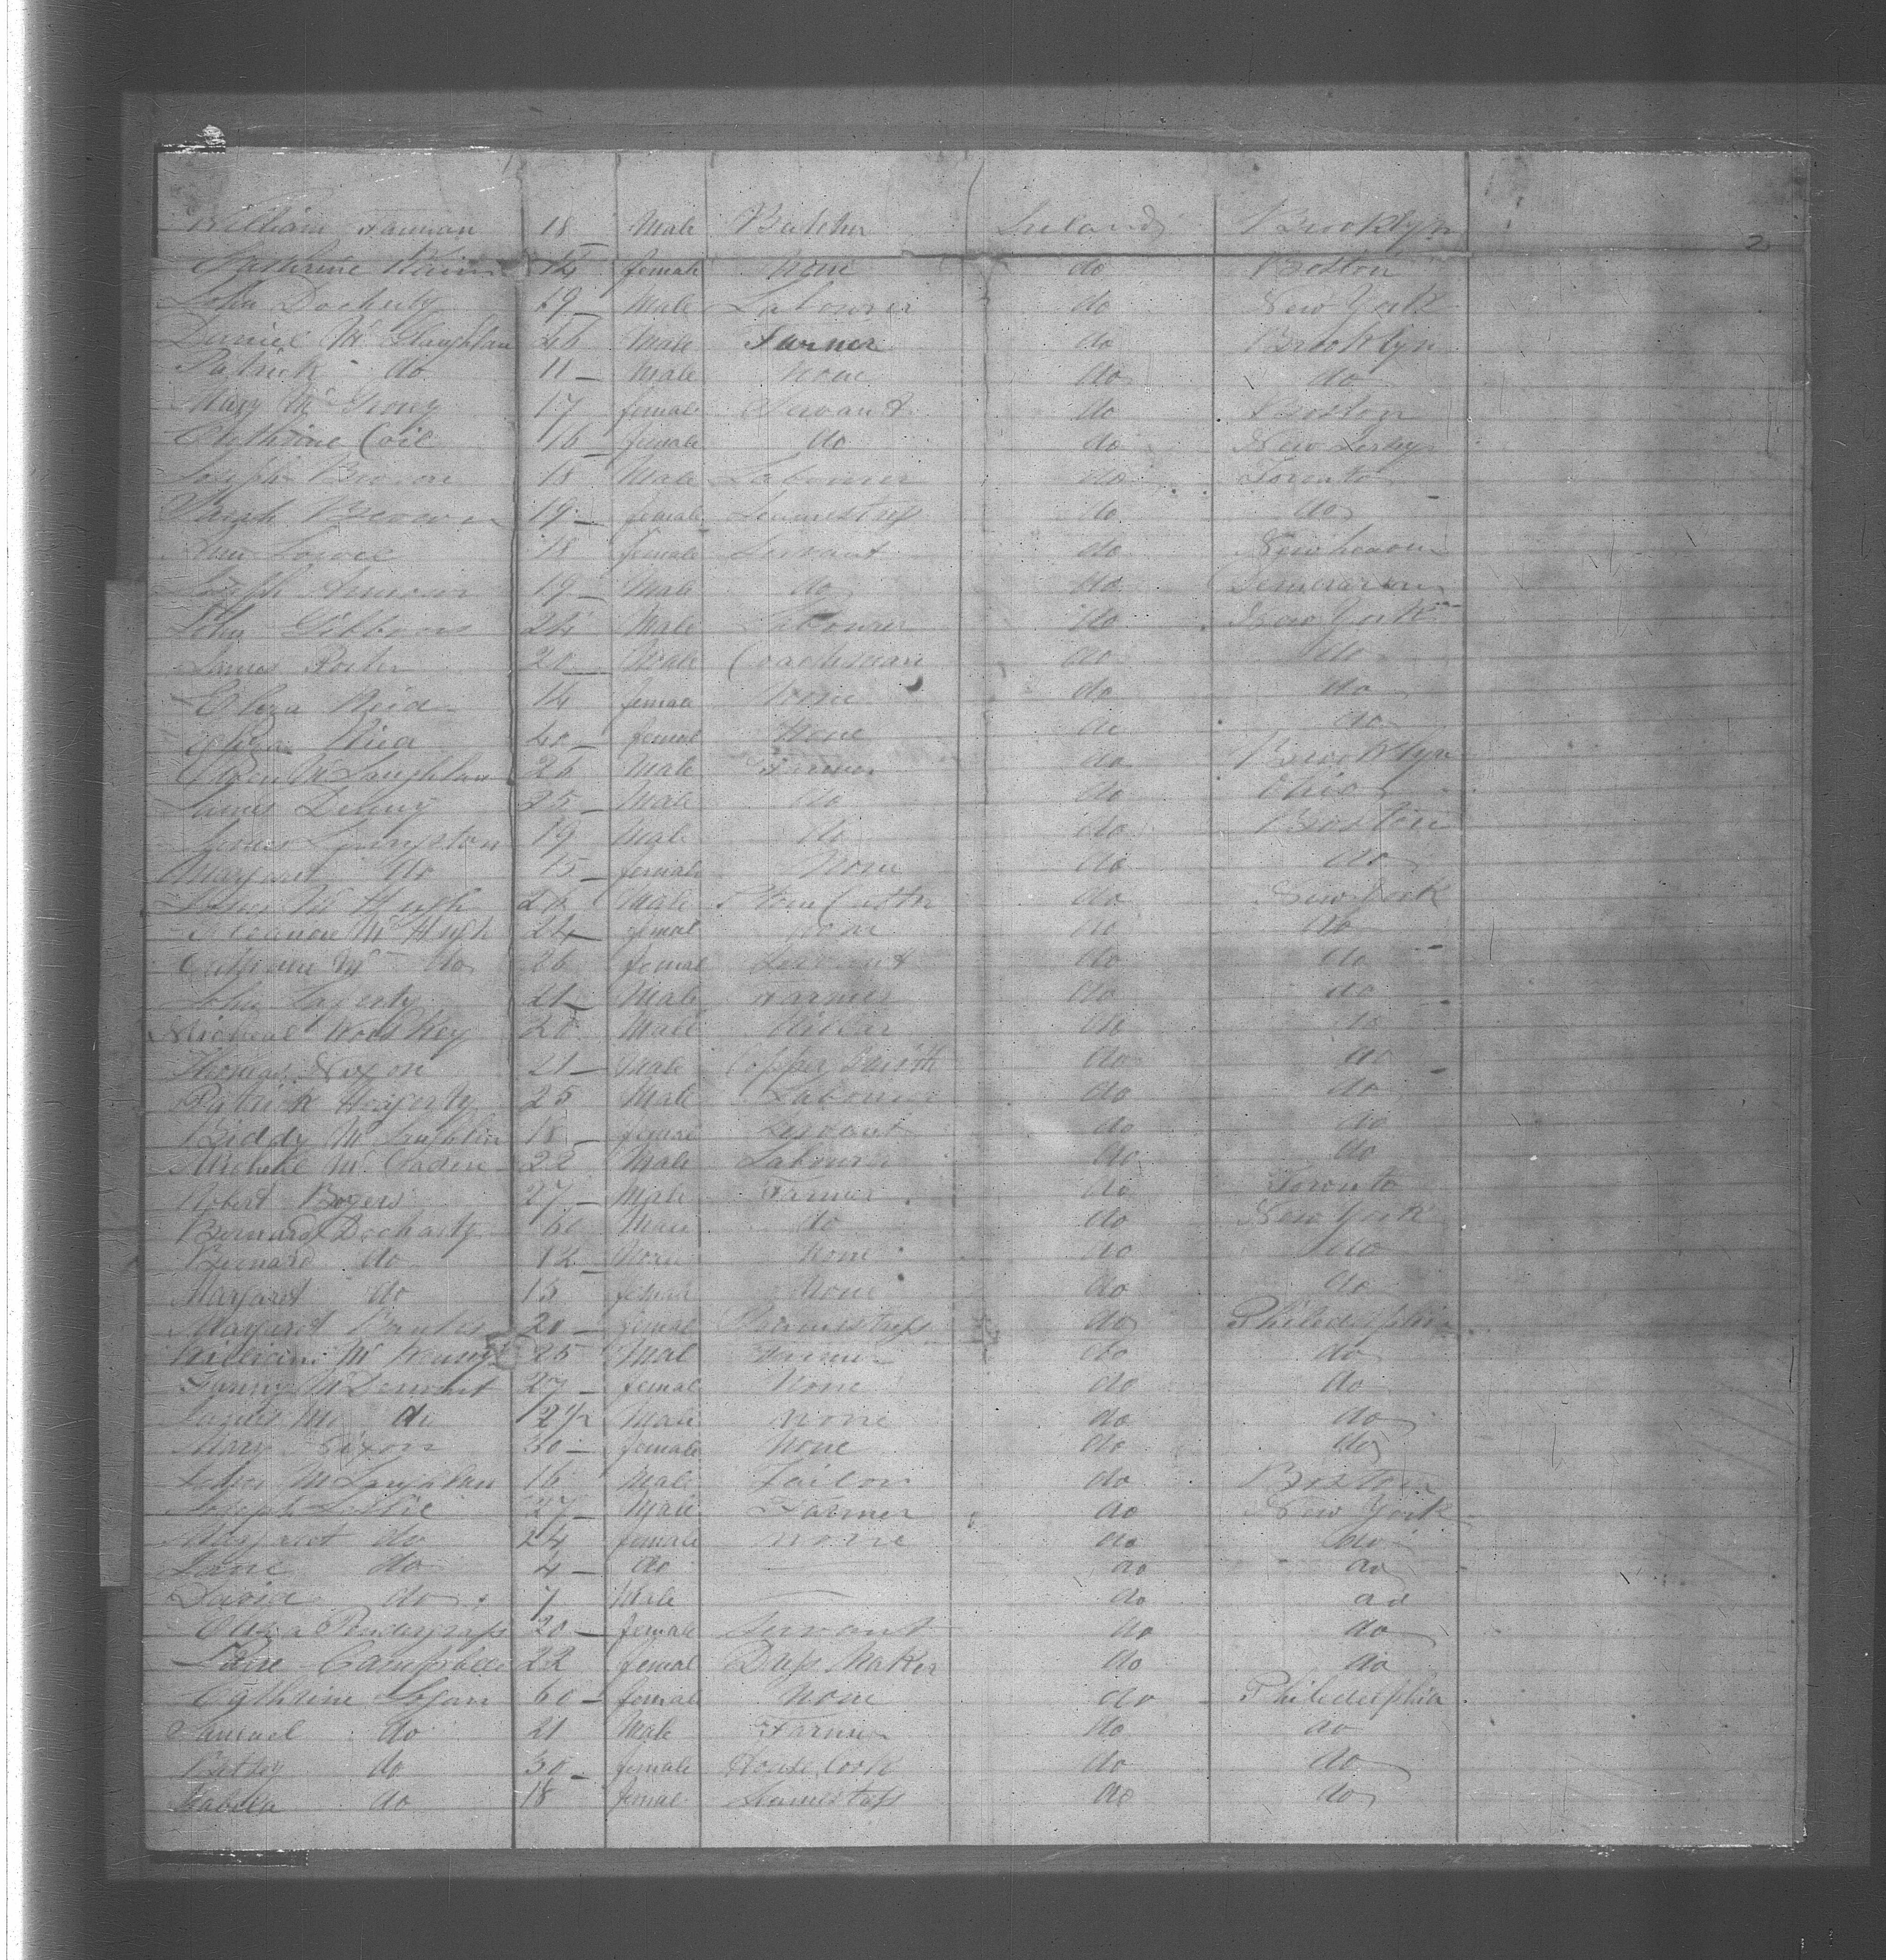 William Fannan 18 Male Butcher Ireland Brooklyn
2
14 female None do Boston
John Docherty 19 Male Labourer do New York
Daniel Mc Glaughlan 26 Male Farmer do Brooklyn
Patrick do 11 Male None do do
Mary Mc 17 female Servant do Boston
Cathrine Coil 16 female do do New Jersey
Joseph Brown 18 Male Labourer do Toronto
Sarah Brown 19 female Seamstress do do
18 female Servant do New heaven
Joseph 19 Male do do
John Gibbons 24 Male Labourer do New York
James Porter 20 Male Coachman do do
Eliza Reid 14 female None do do
Eliza 40 female None do do
Mc Laughlan 26 Male Farmer do Brooklyn
James 25 Male do do Ohio
James 19 Male do do Boston
Margaret do 15 female None do do
James Mc Hugh Male Stone Cutter do New York
Mc Hugh 24 female None do do
Cathrine Mc do 26 female Servant do do
John Laferty 21 Male Farmer do do
Micheal 20 Male do do
Thomas Nixon 21 Male Copper Smith do do
Patrick 25 Male Labourer do do
Biddy Mc Laughlin 18 female Servant do do
Michael Mc Caden 22 Male Labourer do do
Robert 27 Male Farmer do Toronto
Bernard Docharty 60 Male do do New York
Bernard do 12 Male None do do
Margaret do 15 female None do do
Margaret 20 female Seamstress do Philedelphia
William Mc 25 Mal Farmer do do
Fanny Mc Dermot 27 female None do do
James Mc do 2 1/2 Male none do do
Mary Nixon 30 female None do do
Mc Laughlan 16 Male Tailor do Boston
Joseph Leslie 27 Male Farmer do New York
Margaret do 24 female none do do
Jane do 4 do do do
David do 7 Male do do
Eliza Pendergrass 20 female Servant do do
Jane Campbell 22 femal Dress Maker do do
Cythrine Logan 60 female None do Philedelphia
Samuel do 21 Male Farmer do do
Betsey do 30 female House Cook do do
Isabella do 18 femal Seamstress do do